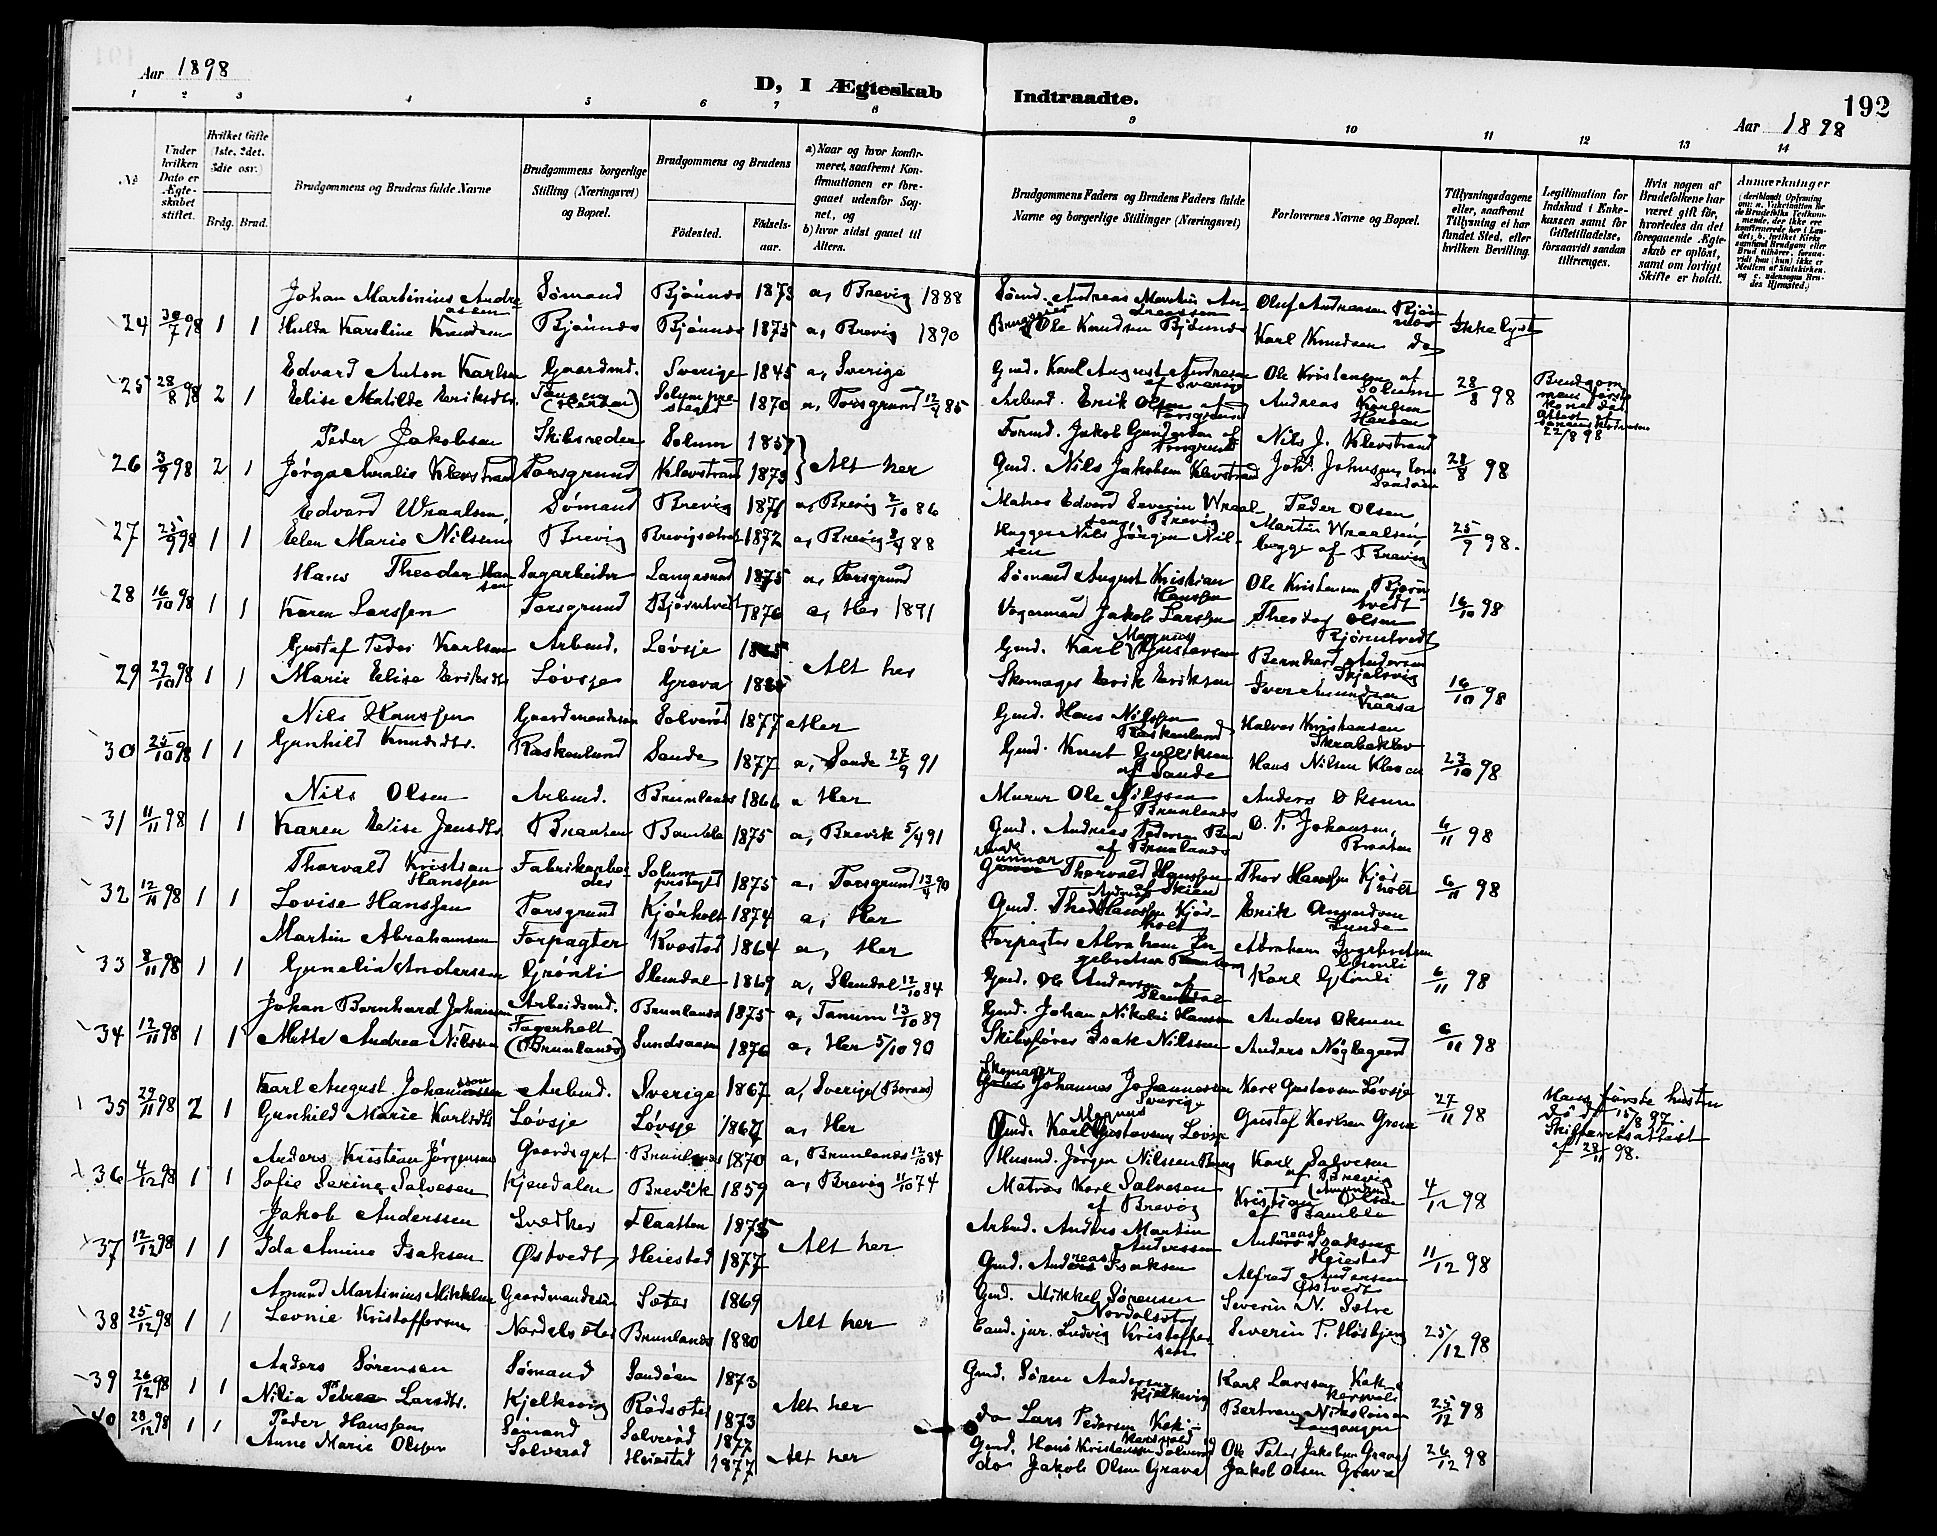 Aar 1898
D, I Ægteskab Indtraadte.
192
Aar 1898
1 2 3 4 5 6 7 8 9 10 11 12 13 14
№
Under hvilken Dato er Ægteskabet stiftet.
Hvilket Gifte (1ste, 2det, 3die osv.)
Brdg. Brud.
Brudgommens og Brudens fulde Navne
Brudgommens borgerlige Stilling (Næringsvei) og Bopæl.
Brudgommens og Brudens
Fødested.
Fødselsaar.
a) Naar og hvor konfirmeret, saafremt Konfirmationen er foregaaet udenfor Sognet, og
b) hvor sidst gaaet til Alters.
Brudgommens Faders og Brudens Faders fulde Navne og borgerlige Stillinger (Næringsvei)
Forlovernes Navne og Bopæl.
Tillysningsdagene eller, saafremt Tillysning ei har fundet Sted, efter hvilken Bevilling.
Legitimation for Indskud i Enkekassen samt for Giftetilladelse, forsaavidt saadan tiltrænges.
Hvis nogen af Brudefolkene har været gift før, hvorledes da det foregaaende Ægteskab er opløst, samt om lovligt Skifte er holdt.
Anmærkninger
24 30/7 98 1 1 Johan Martinius Andreassen Sømand Bjønnes 1873 a, Brevig 1888 Sømd. Andreas Martin Andreassen Oluf Andreassen Bjønnes Ikke lyst
Hulda Karoline Knudsen Bjønnes Bjønnes 1875 a, Brevig 1890 Ole Knudsen Bjønnes Karl Knudsen do
25 28/8 98 2 1 Edvard Anton Karlsen Gaardmd. Sverige 1845 a, Sverige Gmd. Karl August Andresen af Sverige Ole Kristensen af Solum 28/8 98
Elise Matilde Eriksdtr. 1870 a, Porsgrund 12/4 85 Arbmd. Erik Olsen af Porsgrund Andreas Karlsen
Brudgommens første Kone død attest 22/8 98
26 3/9 98 2 1 Peder Jakobsen Skibsreder Solum 1857 Alt her Formd. Jakob Gundersen af Porsgrund Nils J. Klevstrand 28/8 98
Jørga Amalie Klevstrand Porsgrund Klevstrand 1873 Gmd. Nils Jakobsen Klevstrand Joh. Johnsen
27 25/9 98 1 1 Edvard Wraalsen, Sømand Brevig 1871 a, Brevig 2/10 86 Matros Edvard Severin Wraalsen, Brevig Peder Olsen 25/9 98.
Elen Marie Nilsen Brevig Brevigstrand 1872 a, Brevig 88 Hugger Nils Jørgen Nilsen Martin Wraalsen, begge af Brevig
28 16/10 98 1 1 Hans Theodor Hansen Sagarbeider Langesund 1875 a, Porsgrund Sømand August Kristian Hanssen Ole Kristensen Bjørntvedt 16/10 98
Karen Larssen Porsgrund Bjørntvedt 1876 a, Her 1891 Vognmand Jakob Larssen Theodor Olsen Bjørntvedt
29 29/10 98 1 1 Gustaf Peder Karlsen Arbmd. Løvsje Alt her Gmd. Karl Magnus Gustavsen Bernhard Andersen Skjelsvig 16/10 98
Marie Elise Eriksdtr Løvsje Grava Skomager Erik Eriksen Iver Amundsen
30 25/10 98 1 1 Nils Hanssen Gaardmandssøn Solverød 1877 a Her Gmd. Hans Nilssen Røskenlund Halvor Kristensen Skrabeklev
Gunhild Knudsdtr. Røskenlund Sande 1877 a, Sande 27/9 91 Gmd. Knut Gulliksen af Sande Hans Nilsen Kleven 23/10 98
31 11/11 98 1 1 Nils Olsen Arbmd. Brunlanes 1866 a Her Murer Ole Nilssen af Brunlanes Anders Oksum
Karen Elise Jensdtr Braaten Bamble 1875 a, Brevik 5/4 91 Gmd. Andreas Pedersen af Brunlanes O. P. Johansen, Braaten 6/11 98
32 12/11 98 1 1 Thorvald Kristian Hanssen Fabrikarbeider Solum prstgjeld 1875 a, Porsgrund 13/4 90 Gunnar Thorvald Hanssen af Skien Thor Hanssen Kjørholt 6/11 98
Lovise Hanssen Porsgrund Kjørholt 1874 a, Her Gmd. Thor Hanssen Kjørholt Erik Amundsen Lunde
33 8/11 98 1 1 Martin Abrahamsen Forpagter Kvestad 1864 a, Her Forpagter Abraham Ingebretsen Abraham Ingebretsen Grønli
Gunelia Anderssen Grønli Slemdal 1869 a, Slemdal 12/10 84 Gmd. Ole Andersen af Slemdal Karl Grønli 6/11 98
34 12/11 98 1 1 Johan Bernhard Johansen Arbeidsmd. Brunlanes 1875 a, Tanum 13/10 89 Gmd. Johan Nikolai Hansen Anders Oksum 6/11 98
Mette Andrea Nilssen Fagerholt (Brunlanes) Sundsaasen 1876 a, Her 5/10 90 Skibsfører Isak Nilssen Anders Nøglegaard
35 29/11 98 2 1 Karl August Johannesson Arbmd. Sverige 1867 a, Sverige (Boraas) Skomager Johannes Johannessen Sverige Karl Gustavsen Løvsje 27/11 98
Gunhild Marie Karlsdtr Løvsje Løvsje 1867 a, Her Gmd. Karl Magnus Gustavsen, Løvsje Gustaf Karlsen Grava
Hans første hustru død 15/8 97. Skifteretsattest af 28/11 98.
36 4/12 98 1 1 Anders Kristian Jørgensen Gaardsgut Brunlanes 1870 a, Brunlanes 12/10 84 Husmd. Jørgen Nilssen Karl Salvesen af Brevig
Sofie Serine Salvesen Kjendalen Brevik 1859 a, Brevig 11/10 74 Matros Karl Salvesen af Brevig Kristian Olsen af Bamble 4/12 98
37 12/12 98 1 1 Jakob Anderssen Snedker Flaatten 1875 Alt her Arbmd. Anders Martin Anderssen Andreas Isaksen Heiestad 11/12 98
Ida Amine Isaksen Østvedt, Heiestad 1877 Gmd. Andreas Isaksen Alfred Andersen Østvedt
38 25/12 98 1 1 Amund Martinius Mikkelsen Gaardmandssøn Sæter 1869 Alt her Gmd. Mikkel Sørensen Nordalsæter Severin N. Sætre 25/12 98
Leonie Kristoffersen Nordalsæter Brunlanes 1880 Cand. jur. Ludvig Kristoffersen Severin P. Høsbjerg
39 26/12 98 1 1 Anders Sørensen Sømand Sandøen 1873 Alt her Gmd. Søren Andersen Kjelkevig Karl Larssen 25/12 98
Nilia Petrea Larsdtr. Kjelkevig Rødsæter 1873 do Lars Pedersen Bertram Nikolaisen Langangen
40 28/12 98 1 1 Peder Hanssen Sømand Solverød 1877 Alt her Gmd. Hans Kristensen Solverød Ole Peter Jakobsen Grava 26/12 98
Anne Marie Olsen Solverød Heiestad 1877 do Jakob Olsen Grava Jakob Olsen Grava